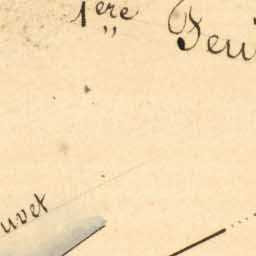 1ère Feui
uvet